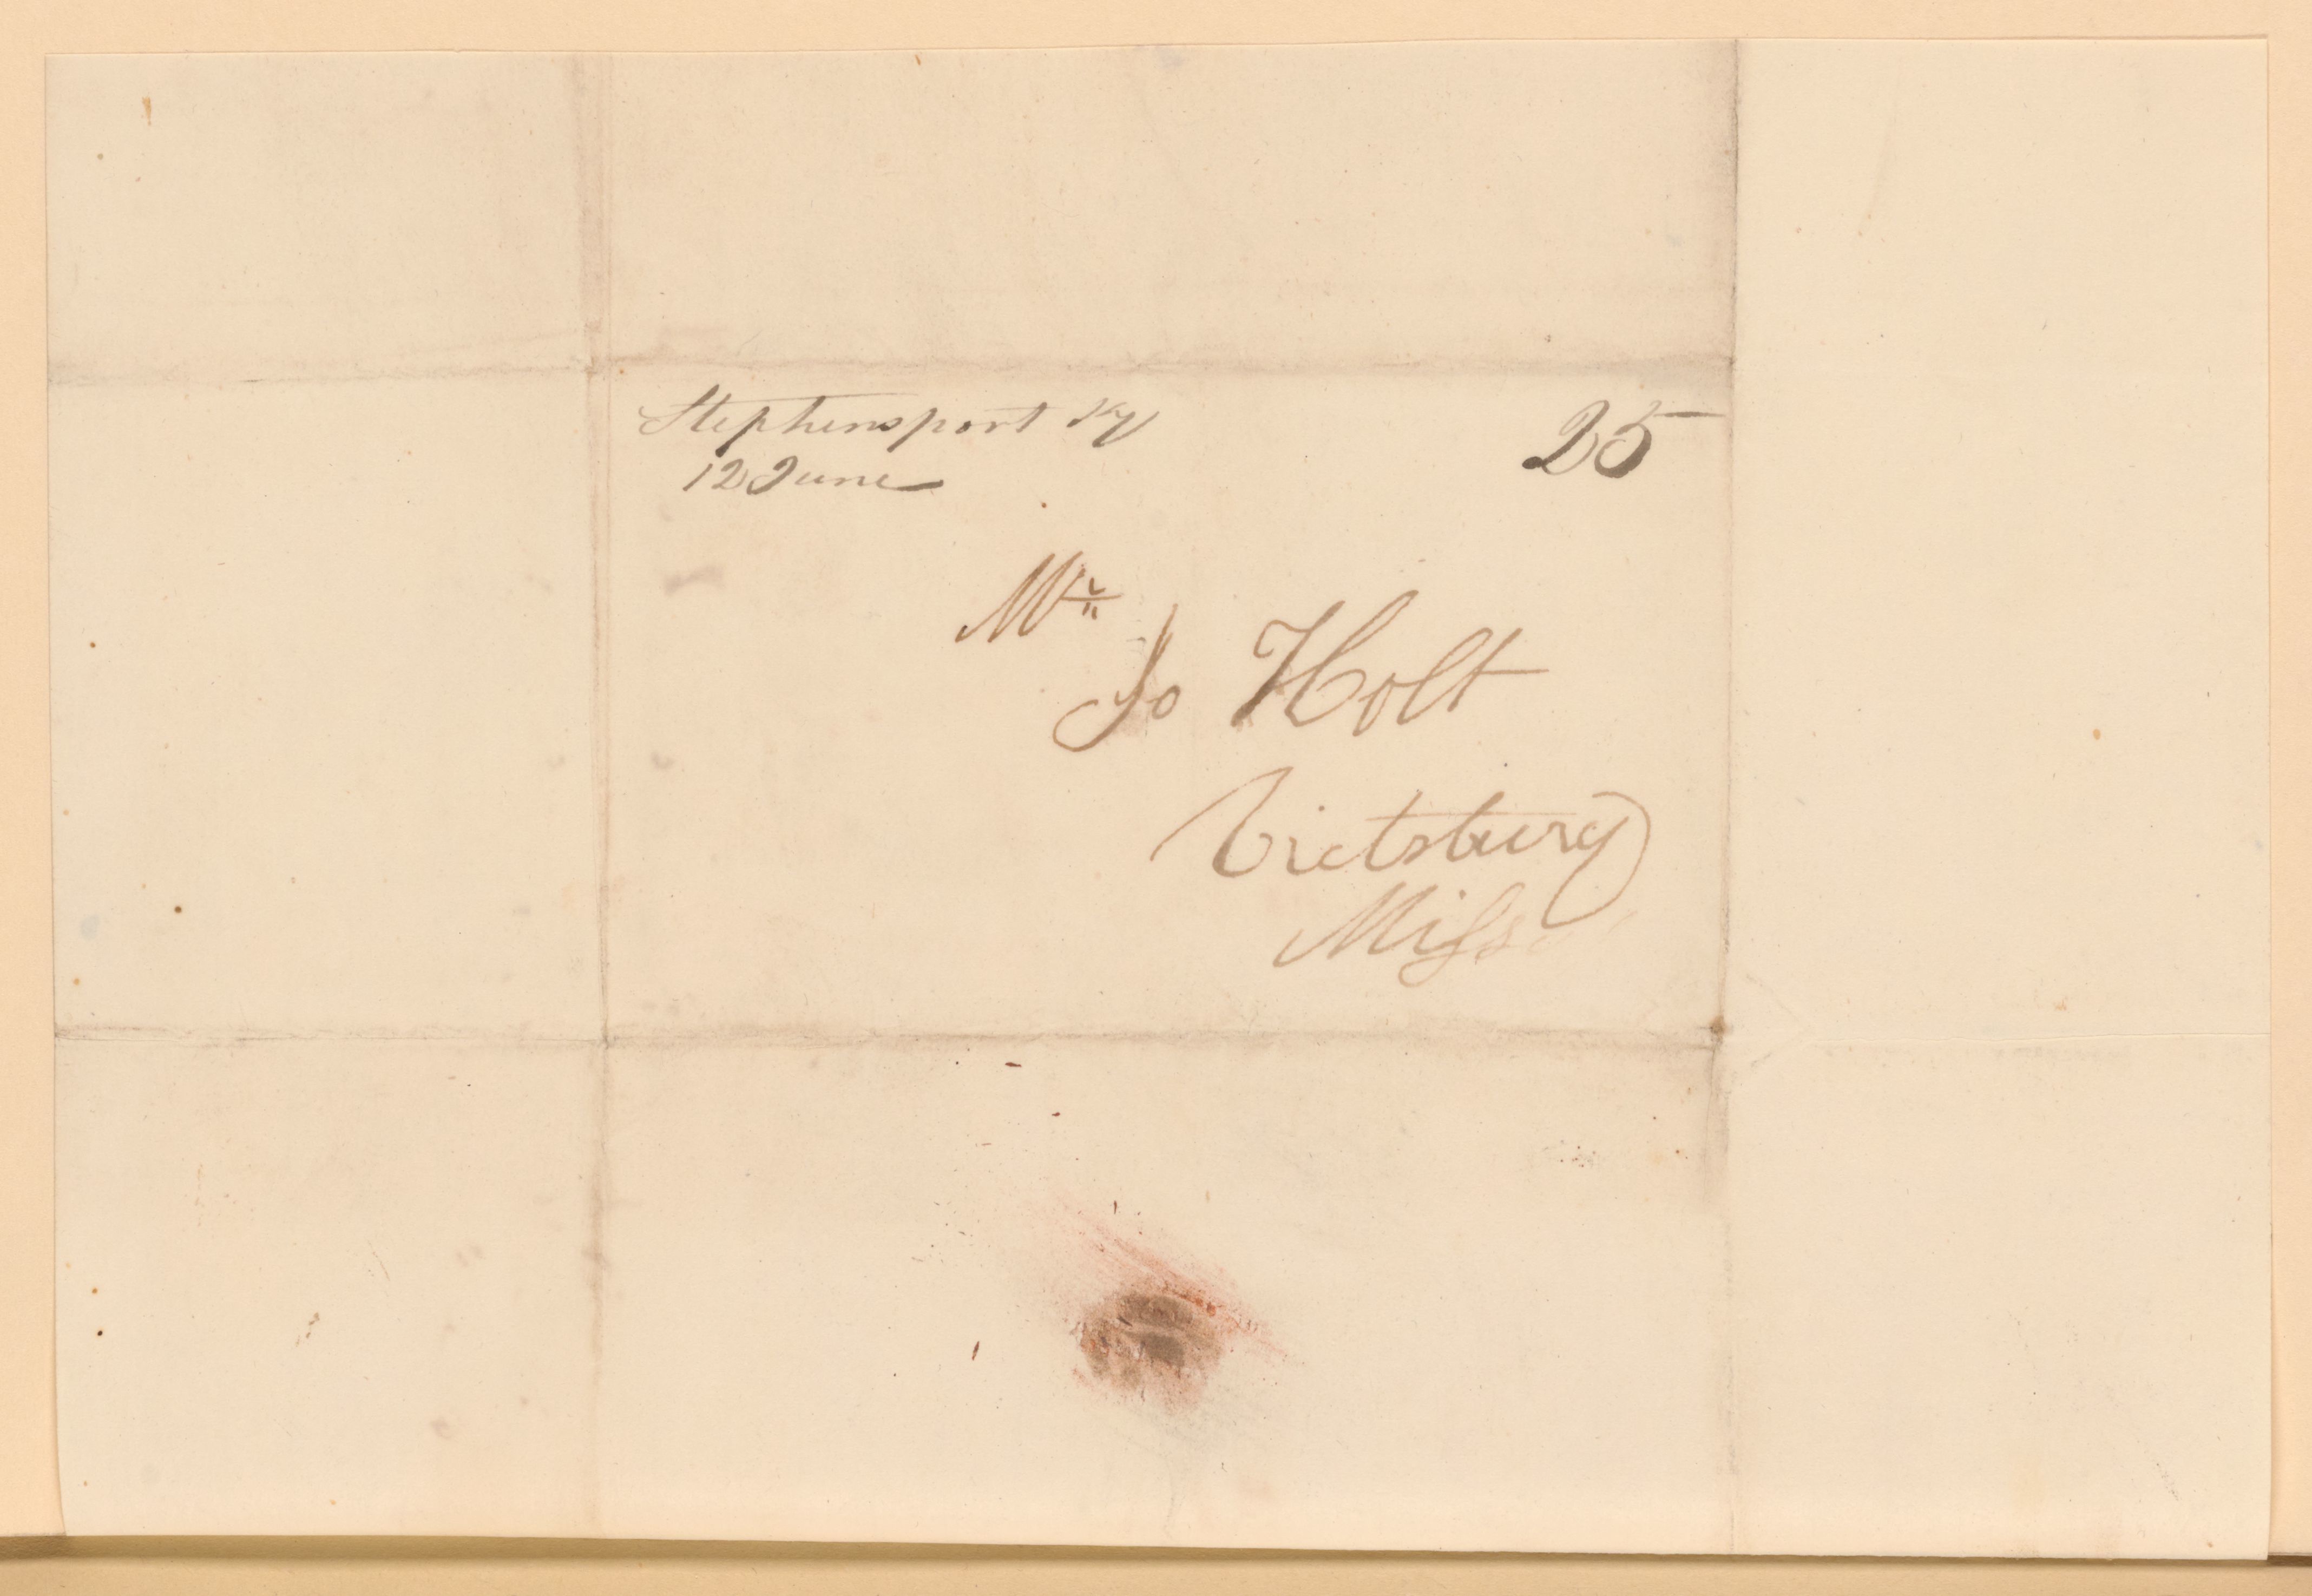 Stephensport Ky 25
12 June
Mr
Jo Holt
Vicksburg
Miss